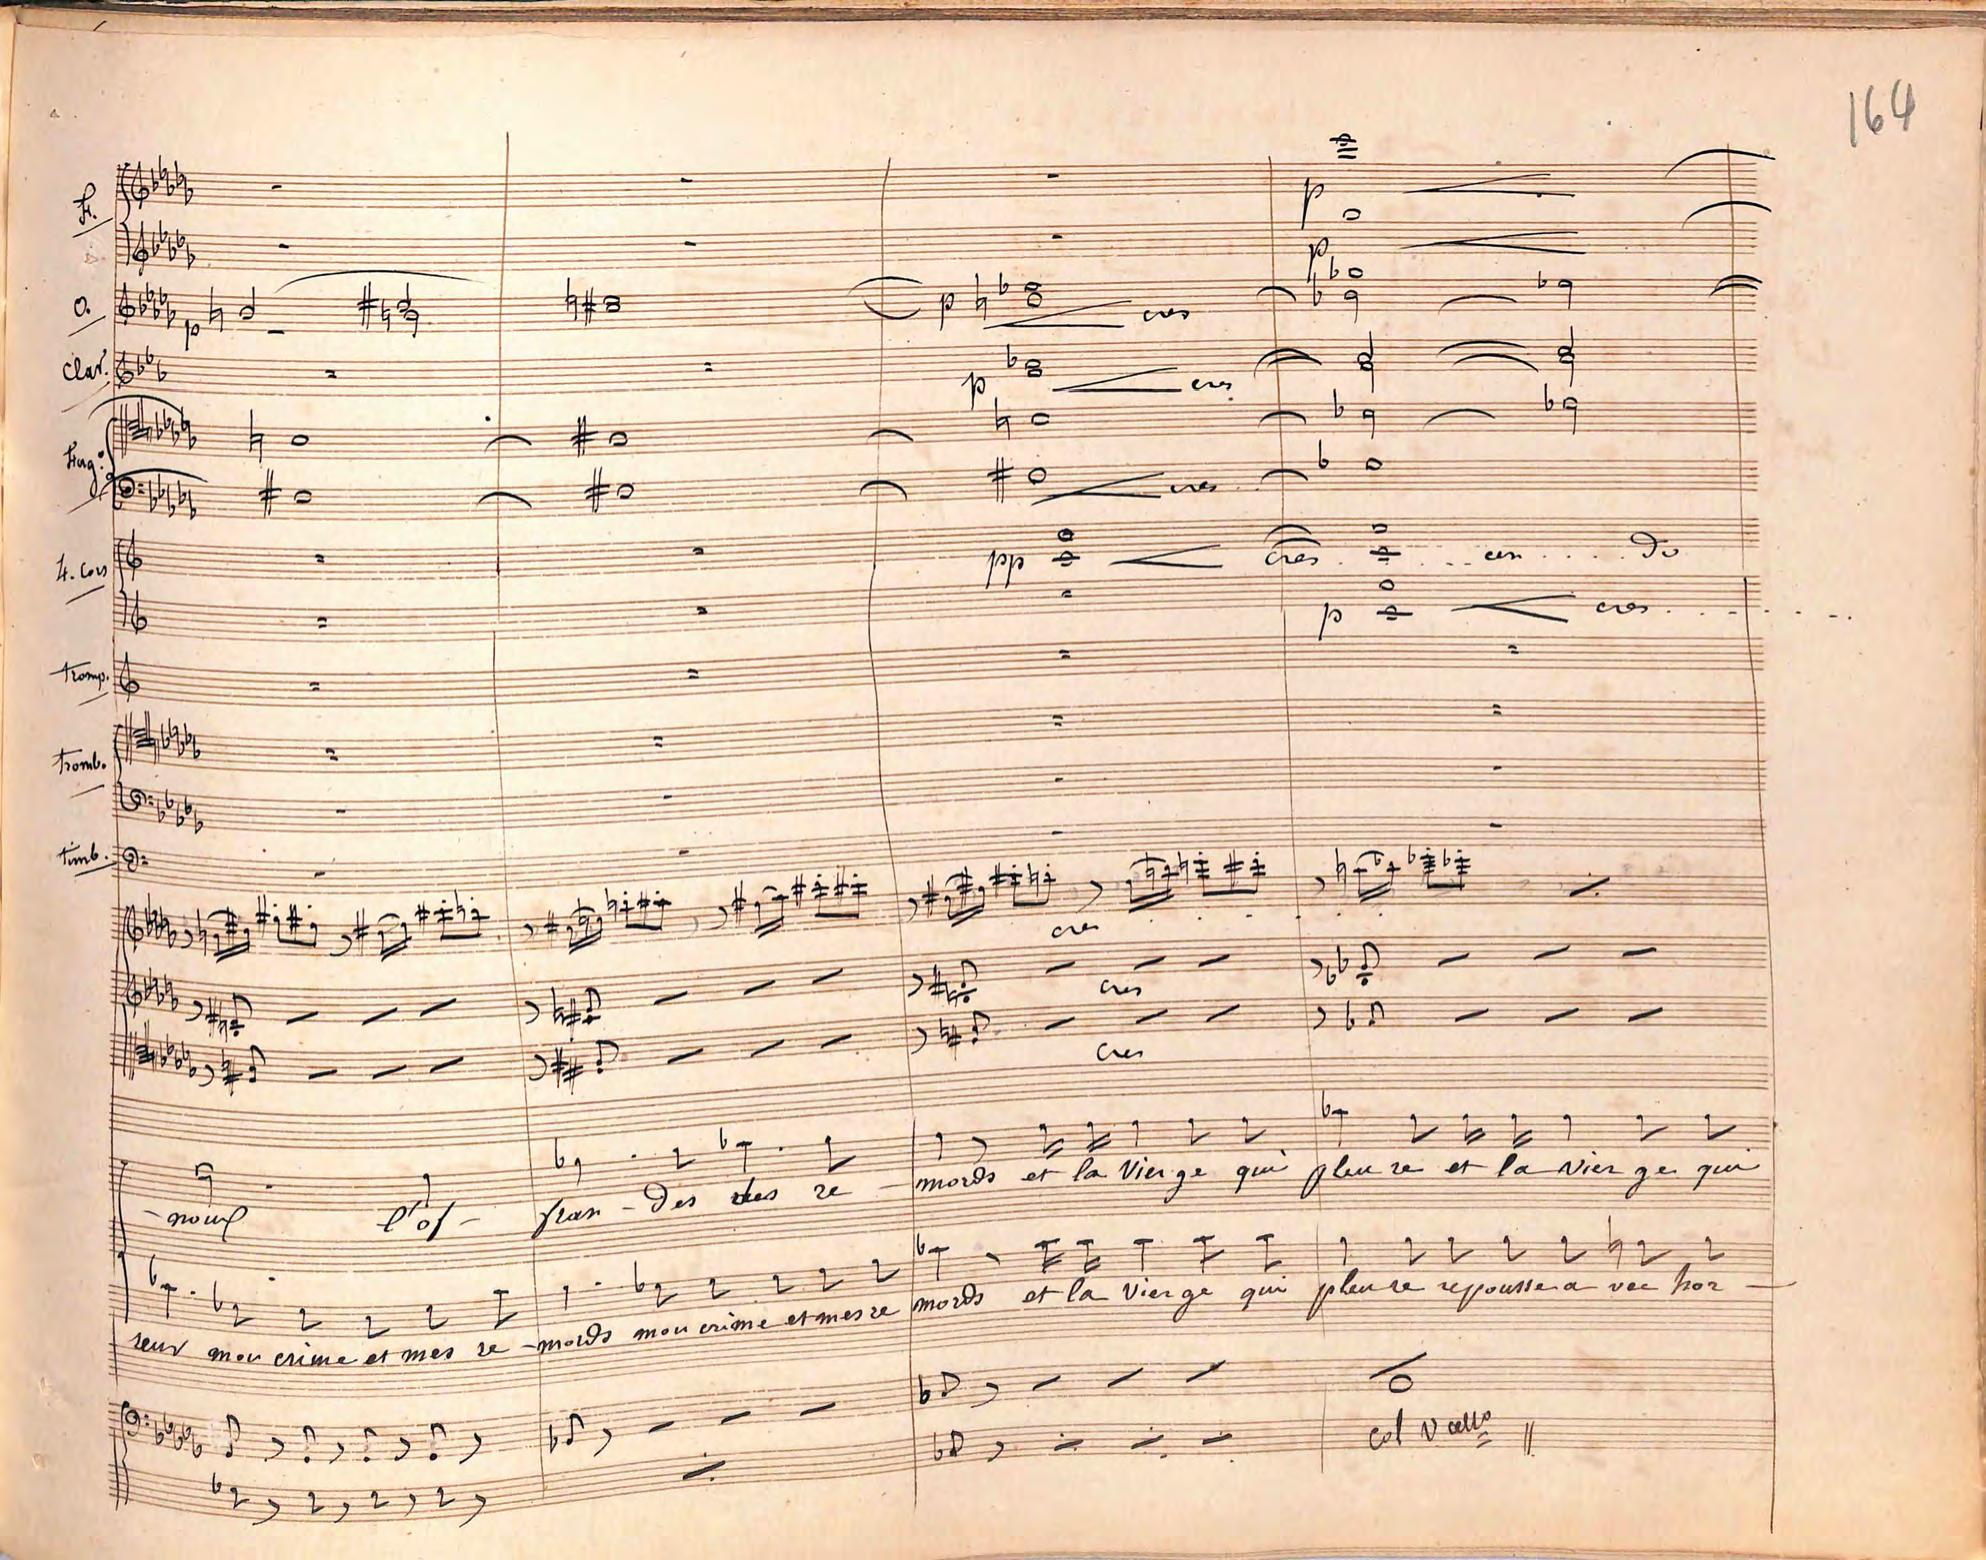 164
Fl.
p
p
O.
p
p cres
Clar.
p cres
Fag:
cres
4. Cors
pp cres. . . . cen . . . . do
p cres. . . .
Tromp.
Tromb.
Timb.
cres
cres
cres
- nous l'of - fran - des des re - mords et la Vierge qui pleu re et la Vier ge qui
reur mon crime et mes re - mords mon crime et mes re mords et la Vierge qui pleu re repousse a vec hor -
col Vcello